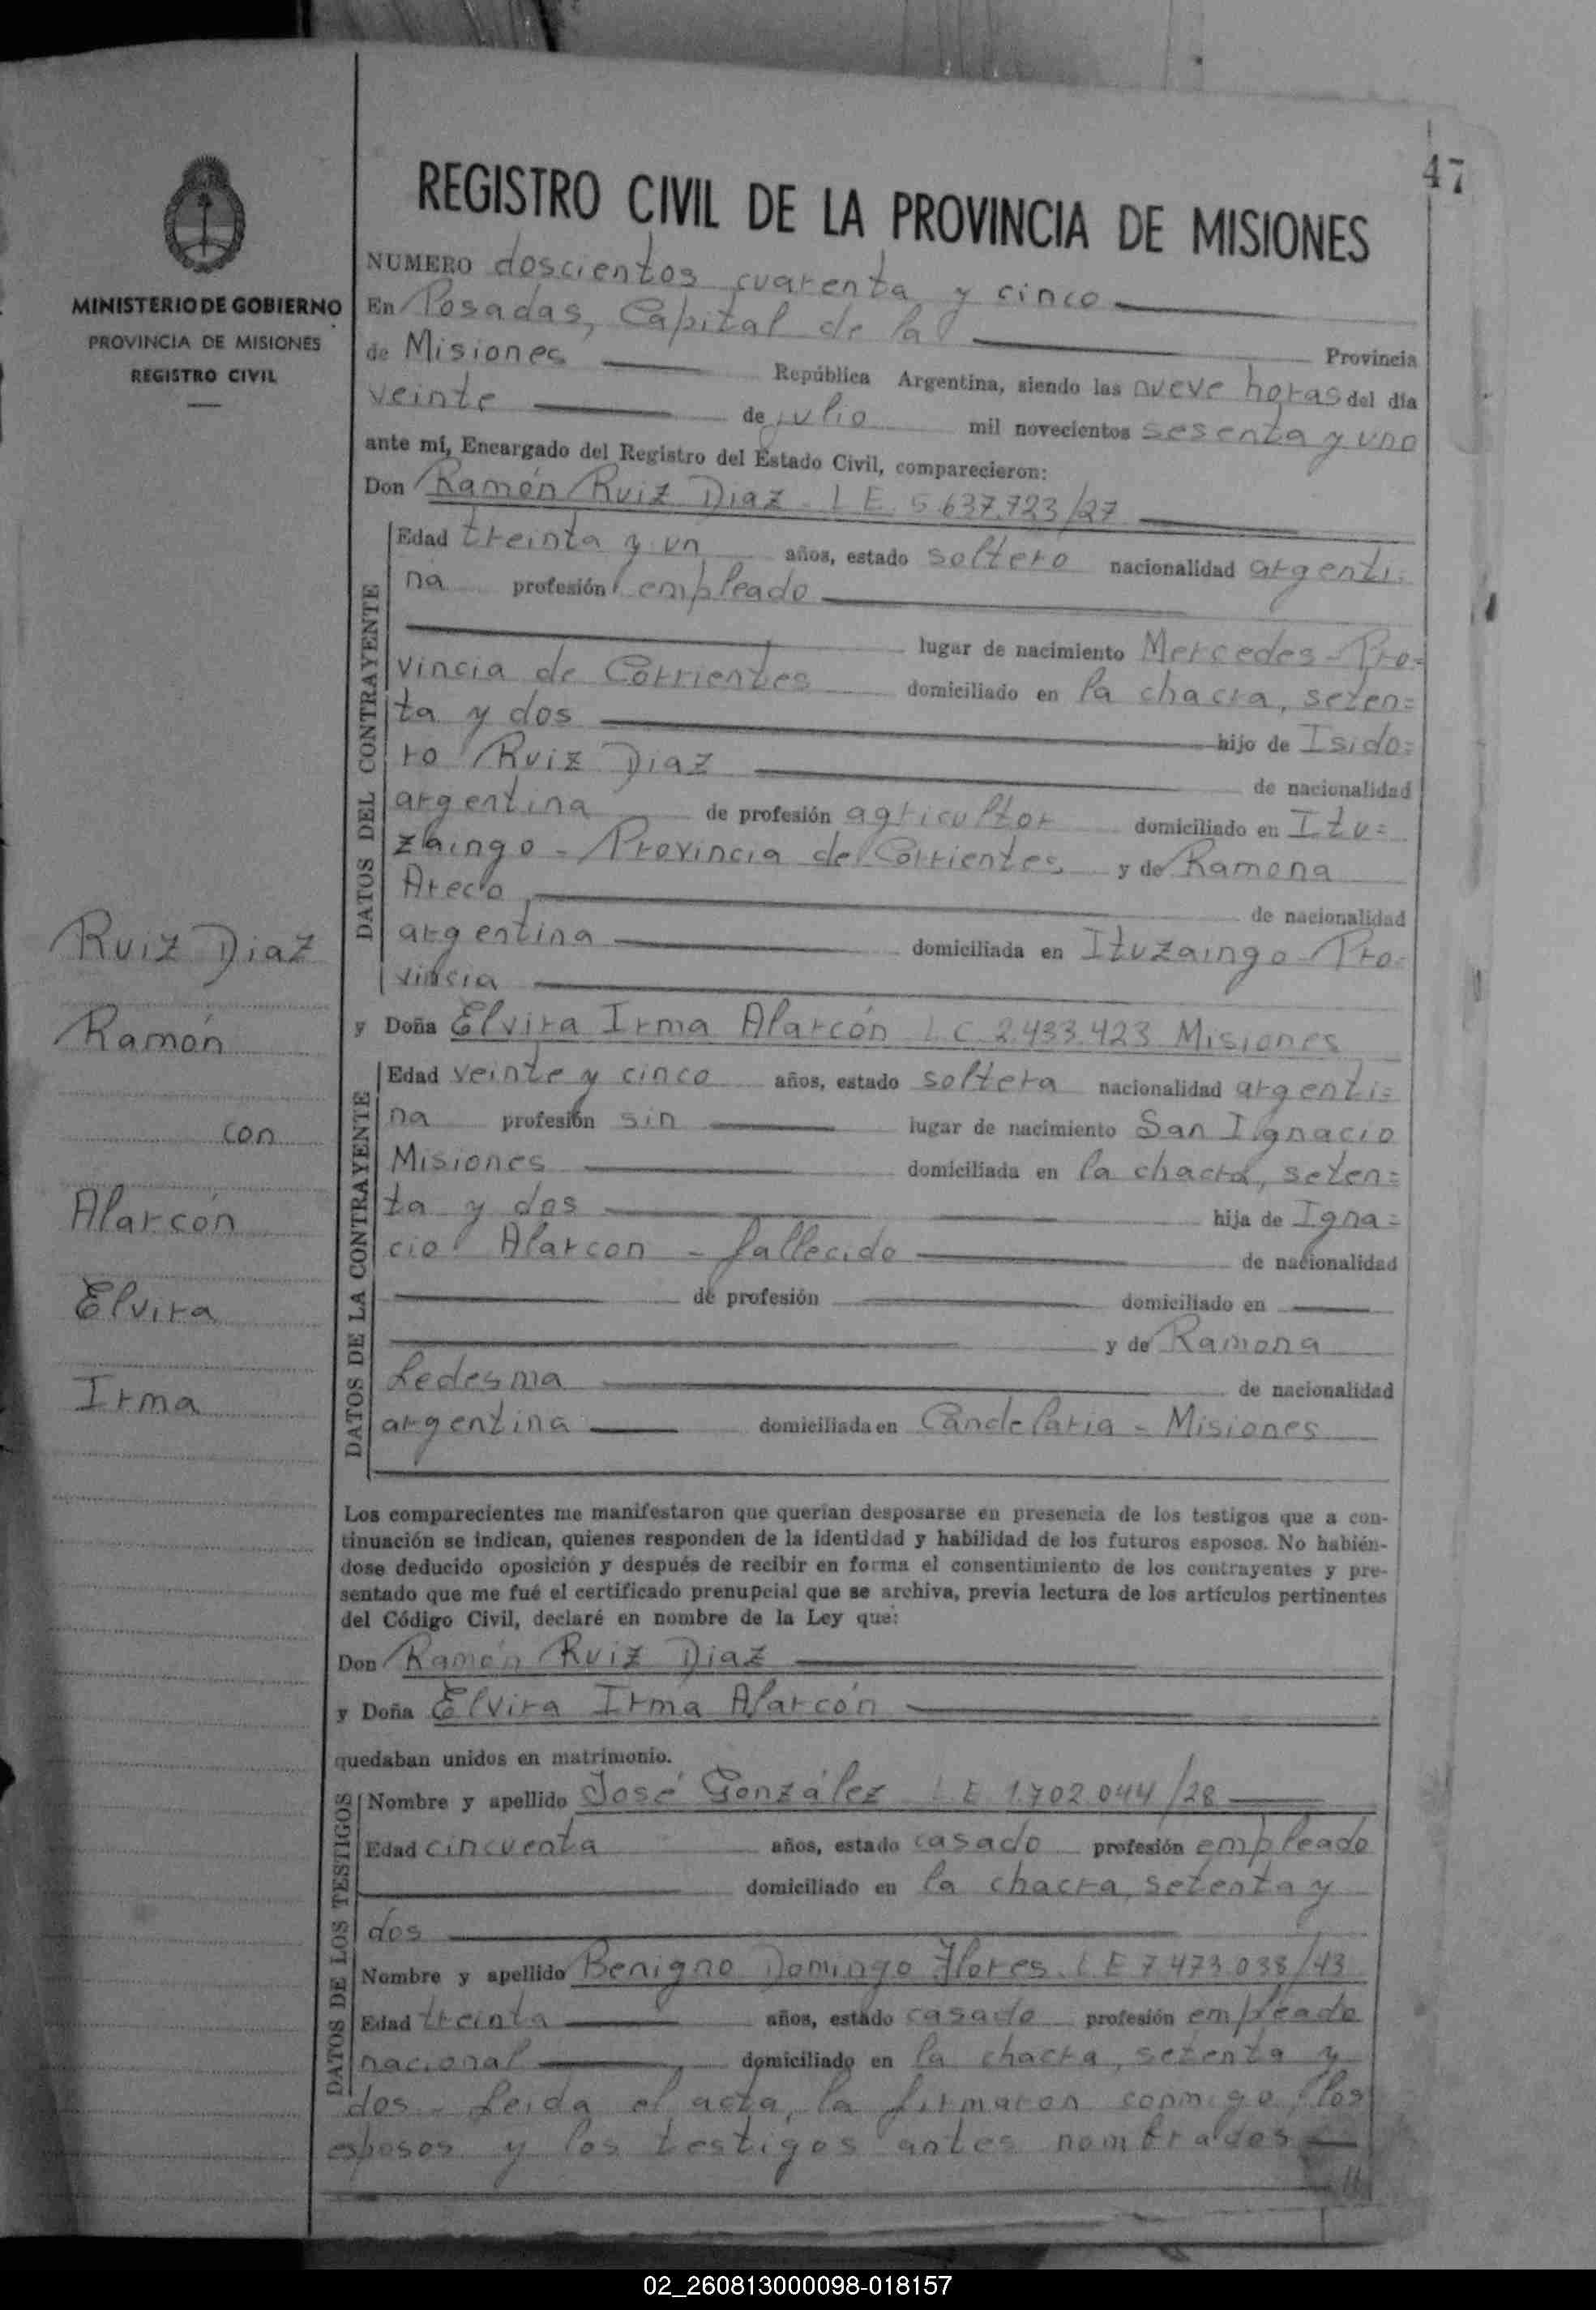 47
MINISTERIO DE GOBIERNO
PROVINCIA DE MISIONES
REGISTRO CIVIL
Ruiz Diaz
Ramón
con
Alarcón
Elvira
Irma
REGISTRO CIVIL DE LA PROVINCIA DE MISIONES
NUMERO doscientos cuarenta y cinco
En Posadas, Capital de la Provincia
de Misiones República Argentina, siendo las nueve horas del día
veinte de julio mil novecientos sesenta y uno
ante mí, Encargado del Registro del Estado Civil, comparecieron:
Don Ramón Ruiz Diaz L E 5.637.723/27
DATOS DEL CONTRAYENTE
Edad treinta y un años, estado soltero nacionalidad argenti-
na profesión empleado
lugar de nacimiento Mercedes - Pro=
vincia de Corrientes domiciliado en la chacra, seten=
ta y dos hijo de Isido=
ro Ruiz Diaz de nacionalidad
argentina de profesión agricultor domiciliado en Itu=
zaingo - Provincia de Corrientes y de Ramona
Areco de nacionalidad
argentina domiciliada en Ituzaingo - Pro=
vincia
y Doña Elvira Irma Alarcón L C 2.433.423 Misiones
DATOS DE LA CONTRAYENTE
Edad veinte y cinco años, estado soltera nacionalidad argenti=
na profesión sin lugar de nacimiento San Ignacio
Misiones domiciliada en la chacra, seten=
ta y dos hija de Igna=
cio Alarcon - fallecido de nacionalidad
de profesión domiciliado en
y de Ramona
Ledesma de nacionalidad
argentina domiciliada en Candelaria - Misiones
Los comparecientes me manifestaron que querían desposarse en presencia de los testigos que a con-
tinuación se indican, quienes responden de la identidad y habilidad de los futuros esposos. No habién-
dose deducido oposición y después de recibir en forma el consentimiento de los contrayentes y pre-
sentado que me fué el certificado prenupcial que se archiva, previa lectura de los artículos pertinentes
del Código Civil, declaré en nombre de la Ley que:
Don Ramón Ruiz Diaz
y Doña Elvira Irma Alarcón
quedaban unidos en matrimonio.
DATOS DE LOS TESTIGOS
Nombre y apellido José González L E 1.702.044/28
Edad cincuenta años, estado casado profesión empleado
domiciliado en la chacra, setenta y
dos
Nombre y apellido Benigno Domingo Flores. L E 7.473.038/43
Edad treinta años, estado casado profesión empleado
nacional domiciliado en la chacra, setenta y
dos - Leida el acta, la firmaron conmigo, los
esposos y los testigos antes nombrados
02_260813000098-018157